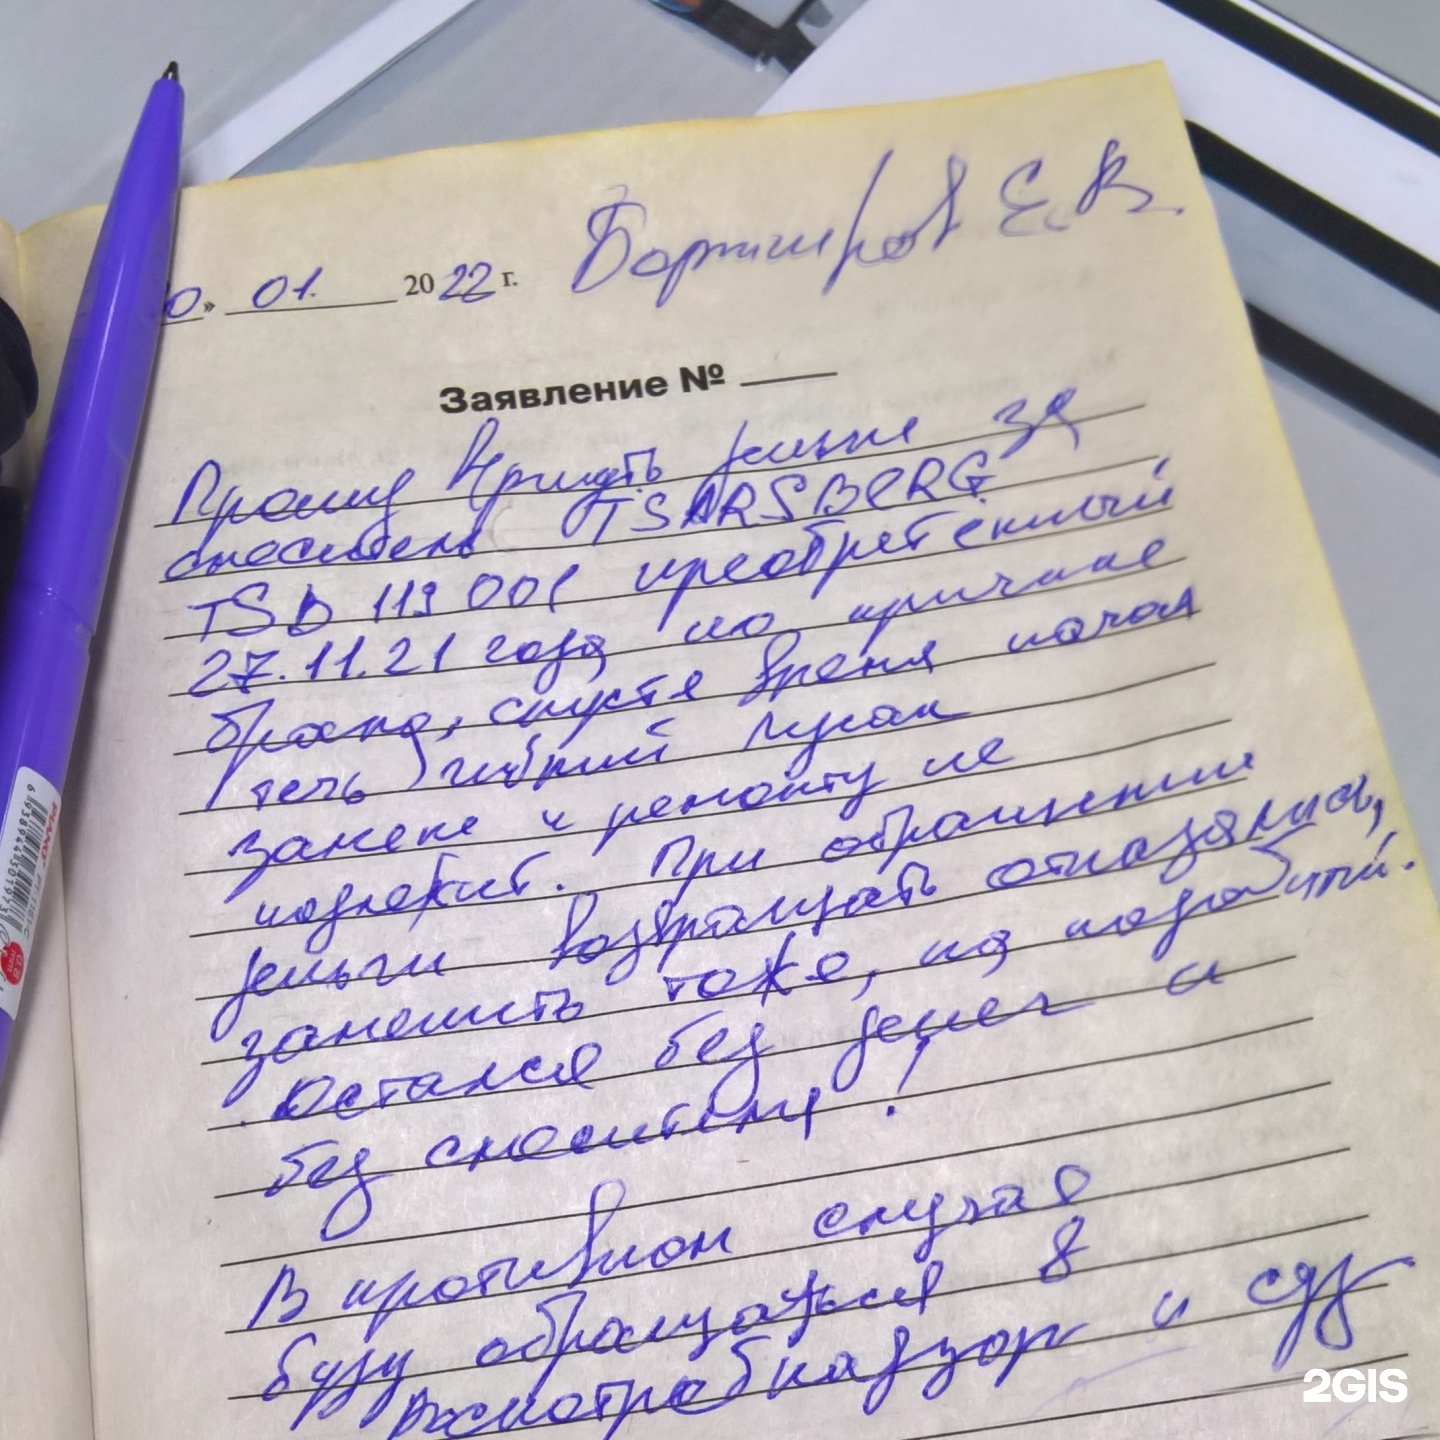 0» 01. 2022 г.
Е.В.
Заявление № ____
Прошу вернуть деньги за
смеситель TSARSBERG
TSB 119 001 преобретённый
27.11.21 года по причине
брака, спустя время начал
течь гибкий рукав
замене и ремонту не
подлежит. При обращении
деньги возвращать отказались,
заменить тоже, на подобный.
Остался без денег и
без смесителя!
В противном случае
буду обращаться в
Роспотребнадзор и суд
PIANO
6938944501973
2GIS